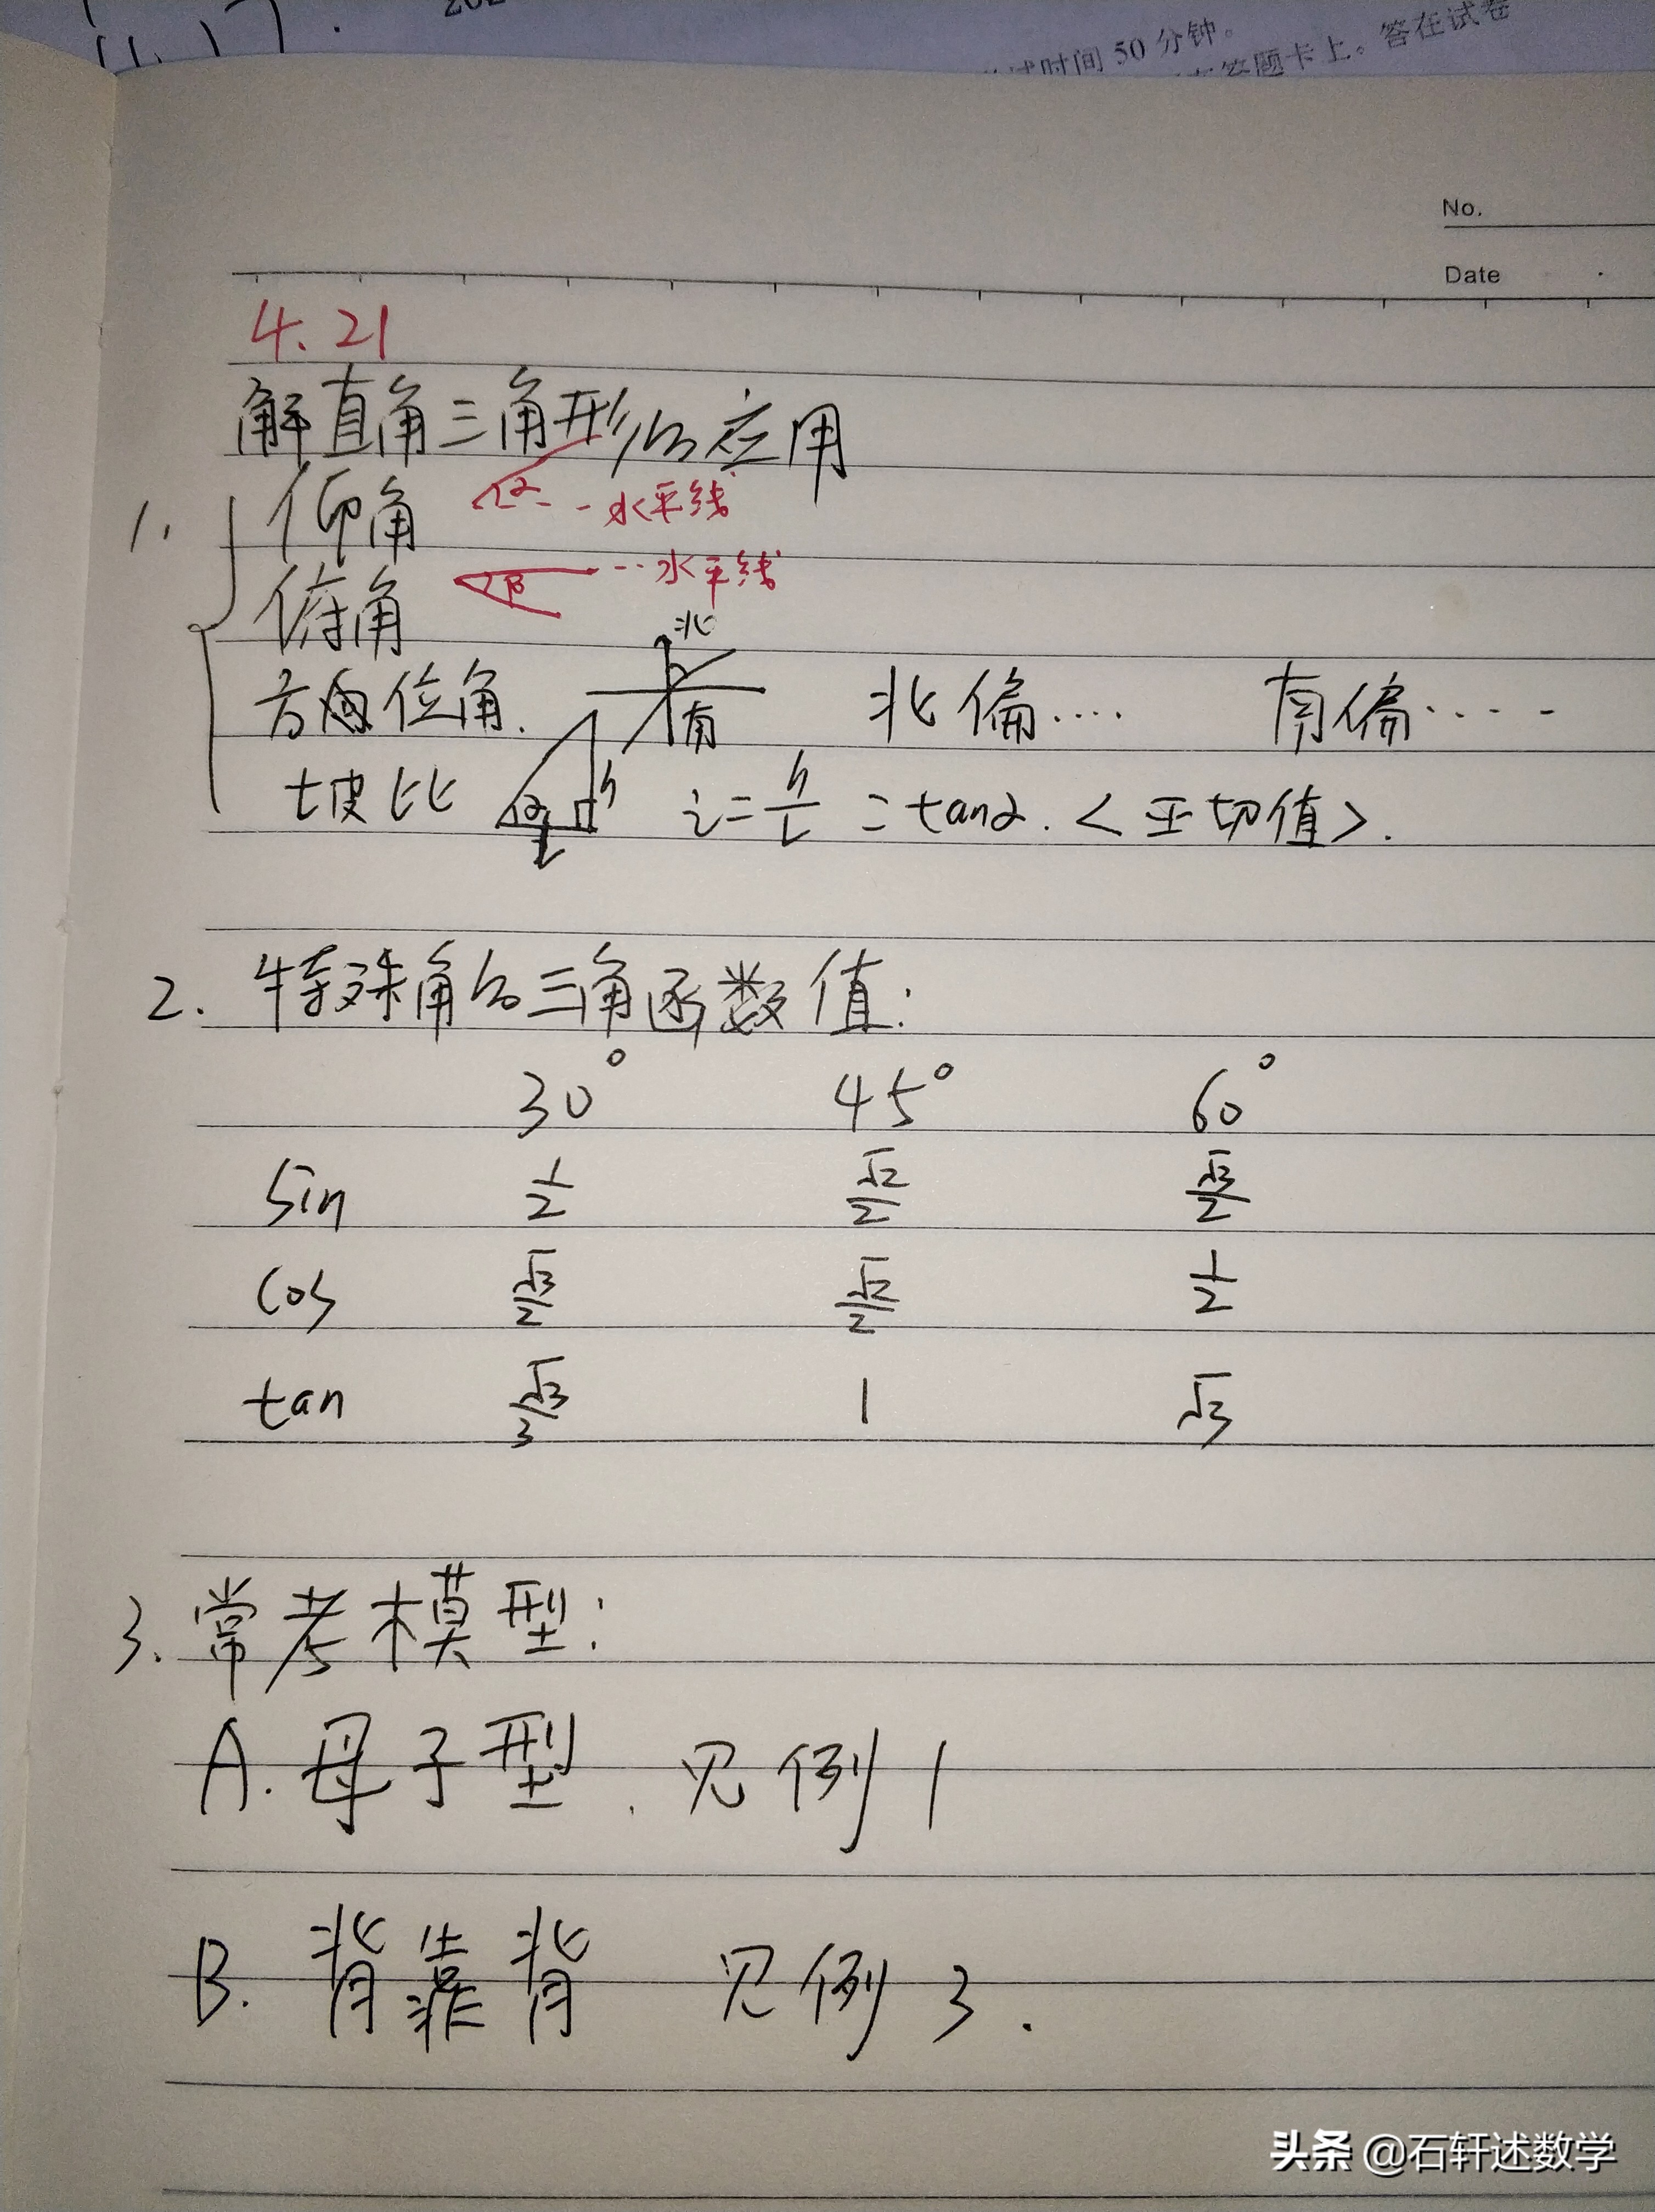 试时间50分钟。
答题卡上。答在试卷
No.
Date
4.21
解直角三角形的应用
1. 仰角 α 水平线
俯角 β 水平线
北
方向位角. 南 北偏.... 南偏.....
坡比 α h l i=h/l=tanα.<正切值>.
2. 特殊角的三角函数值:
30° 45° 60°
sin 1/2 √2/2 √3/2
cos √3/2 √2/2 1/2
tan √3/3 1 √3
3. 常考模型:
A. 母子型. 见例1
B. 背靠背 见例3.
头条 @石轩述数学